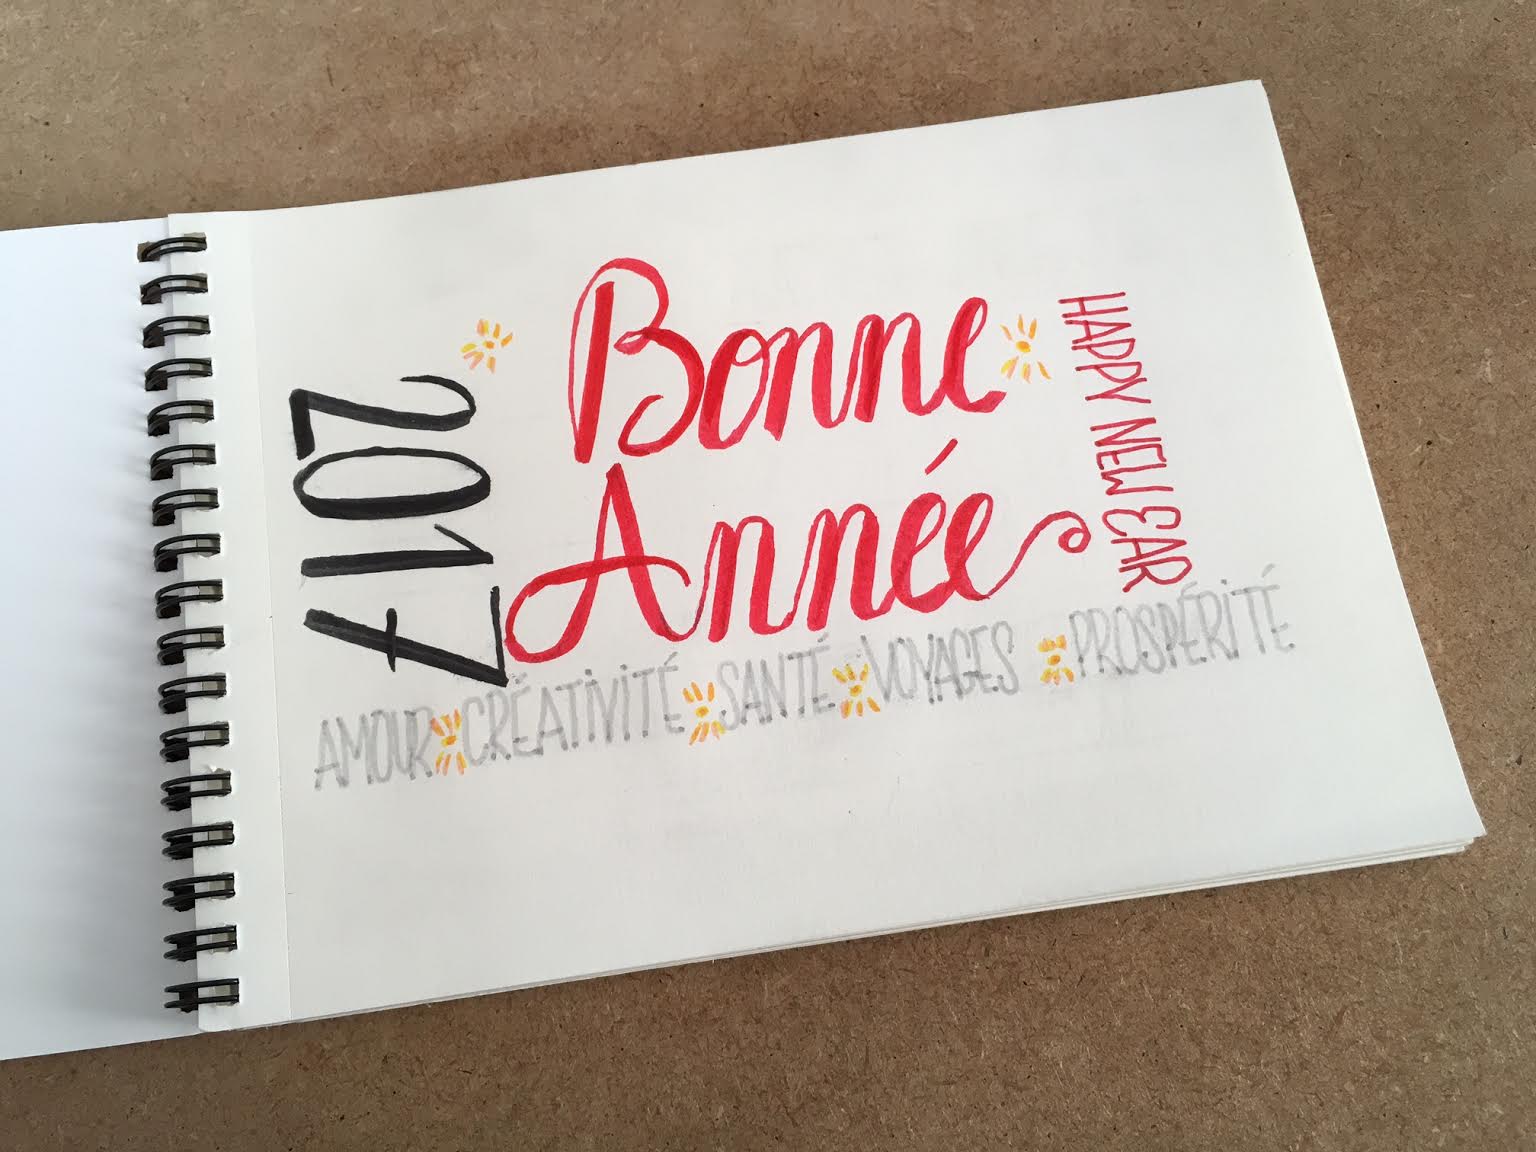 2017
Bonne
Année
HAPPY NEW EAR
AMOUR CRÉATIVITÉ SANTÉ VOYAGES PROSPÉRITÉ